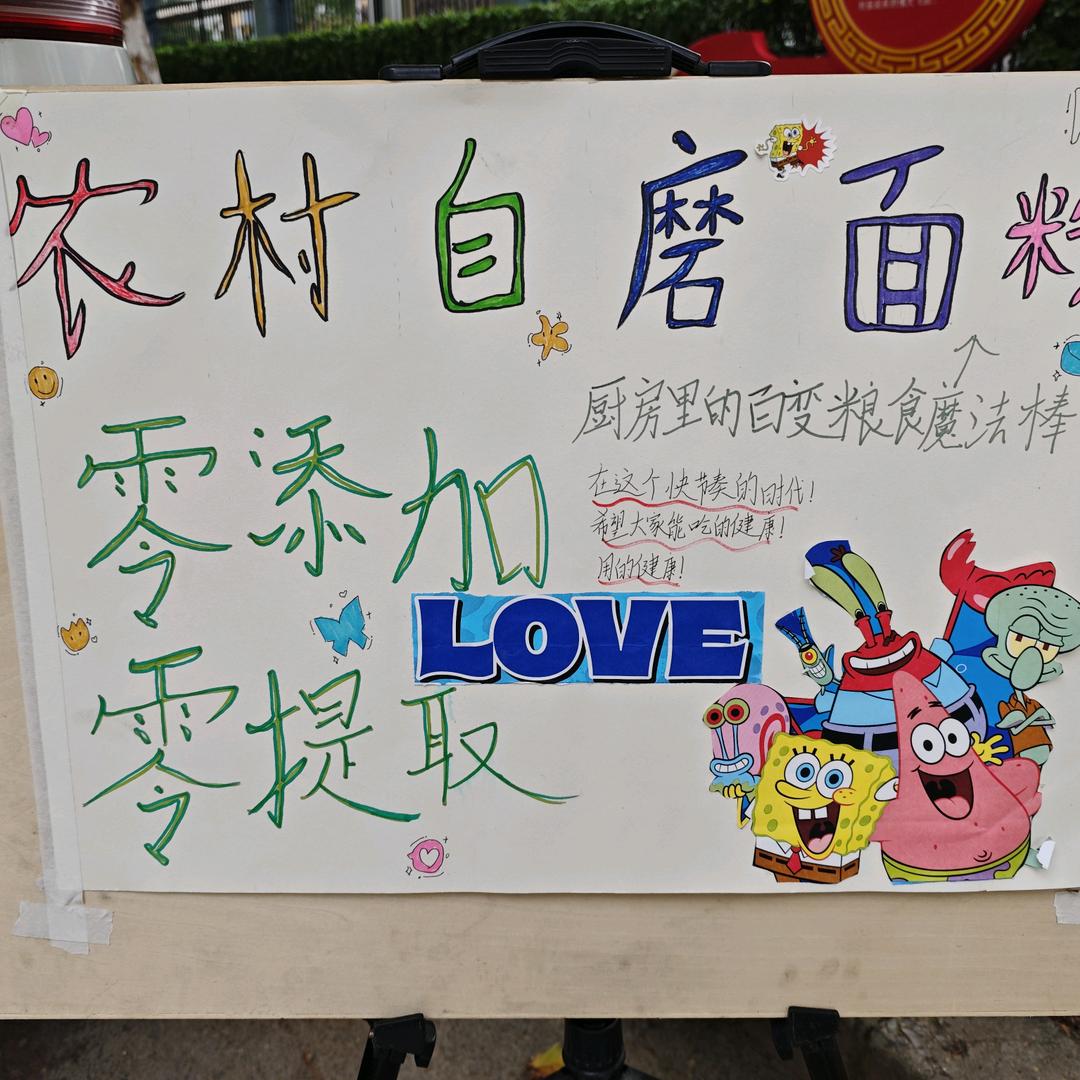 农村自磨面粉
厨房里的百变粮食魔法棒
零添加
在这个快节奏的时代!
希望大家能吃的健康!
用的健康!
LOVE
零提取